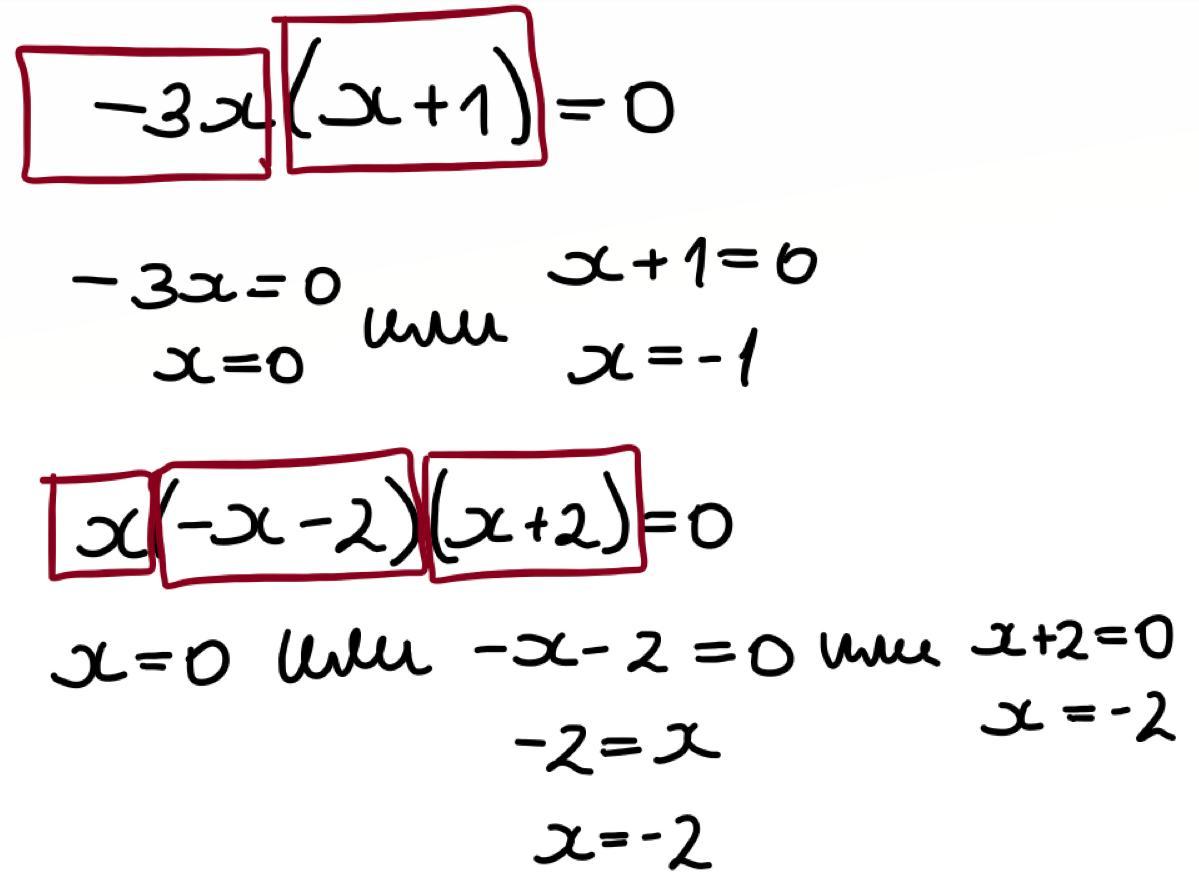 -3x(x+1)=0
-3x=0 или x+1=0
x=0 x=-1
x(-x-2)(x+2)=0
x=0 или -x-2=0 или x+2=0
-2=x x=-2
x=-2